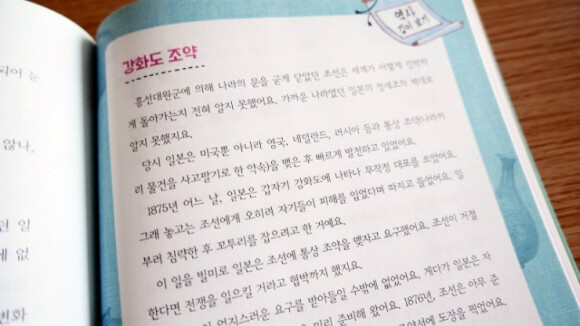 되어 눈
않나.
린 일
에 없
변화
역사
깊이 보기
강화도 조약
흥선대원군에 의해 나라의 문을 굳게 닫았던 조선은 세계가 어떻게
게 돌아가는지 전혀 알지 못했어요. 가까운 나라였던 일본의 정세조차 제대로
알지 못했지요.
당시 일본은 미국뿐 아니라 영국, 네덜란드, 러시아 등과 통상 조약(나라끼
리 물건을 사고팔기로 한 약속)을 맺은 후 빠르게 발전하고 있었어요.
1875년 어느 날, 일본은 갑자기 강화도에 나타나 무작정 대포를 쏘았어요.
그래 놓고는 조선에게 오히려 자기들이 피해를 입었다며 따지고 들었어요. 일
부러 침략한 후 꼬투리를 잡으려고 한 거예요.
이 일을 빌미로 일본은 조선에 통상 조약을 맺자고 요구했어요. 조선이 거절
한다면 전쟁을 일으킬 거라고 협박까지 했지요.
억지스러운 요구를 받아들일 수밖에 없었어요. 게다가 일본은 자
미리 준비해 왔어요. 1876년, 조선은 아무 준
약에 도장을 찍었어요.